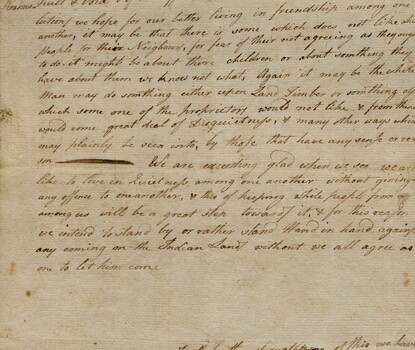 intent, we hope for our better living in friendship among one
another, it may be that there is some which does not like also
People for their Neighbour, for fear of their not agreeing as they ought
to do. it might be about there children or about somthing they
have about them we know not what, Again it may be the white
Man may do somthing either upon Land Timber or somthing els
which some one of the proprietors would not like & from there
would come great deal of Disquietness, & many other ways which
may plainly be seen into, by those that have any sense or rea
son We are exceeding glad when we see we are
like to live in Quietness among one another without giving
any offence to one another, & this of keeping white people from
among us will be a great step toward it, & for this reason
we intend to stand by or rather stand Hand in hand against
any coming on the Indian Land without we all agree as
one to let him come
of this we have